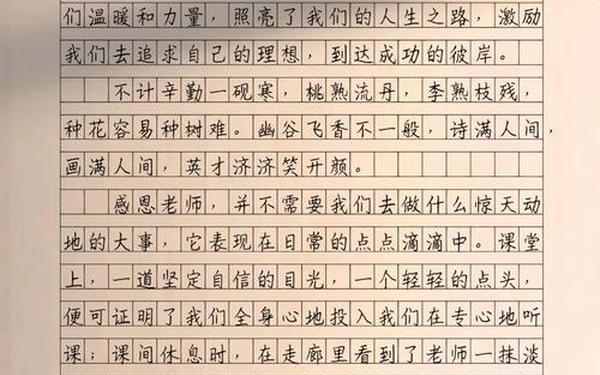 们温暖和力量，照亮了我们的人生之路，激励
我们去追求自己的理想，到达成功的彼岸。
不计辛勤一砚寒，桃熟流丹，李熟枝残，
种花容易种树难。幽谷飞香不一般，诗满人间，
画满人间，英才济济笑开颜。
感恩老师，并不需要我们去做什么惊天动
地的大事，它表现在日常的点点滴滴中。课堂
上，一道坚定自信的目光，一个轻轻的点头，
便可证明了我们全身心地投入我们在专心地听
课；课间休息时，在走廊里看到了老师一抹淡